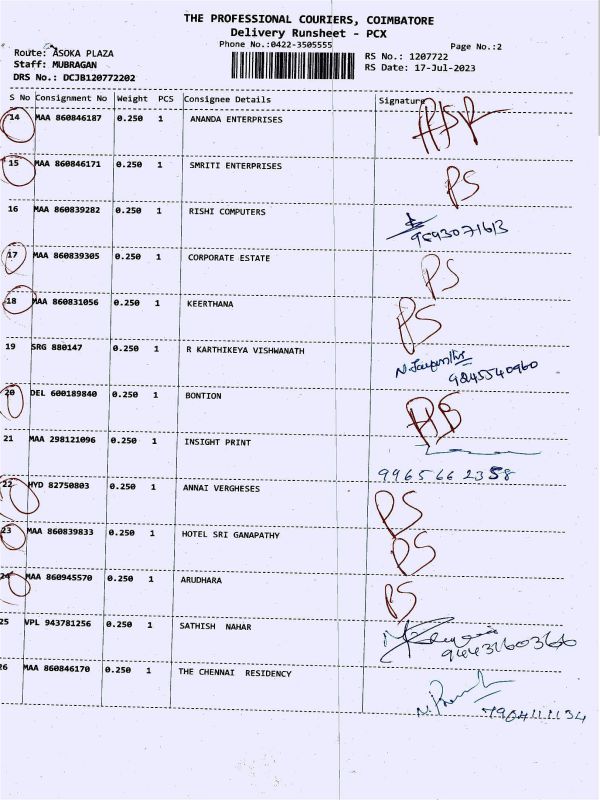 THE PROFESSIONAL COURIERS, COIMBATORE
Delivery Runsheet - PCX
Phone No.:0422-3505555
Page No.:2
Route: ASOKA PLAZA
Staff: MUBRAGAN
DRS No.: DCJB120772202
RS No.: 1207722
RS Date: 17-Jul-2023
S No Consignment No Weight PCS Consignee Details Signature
14 MAA 860846187 0.250 1 ANANDA ENTERPRISES
15 MAA 860846171 0.250 1 SMRITI ENTERPRISES PS
16 MAA 860839282 0.250 1 RISHI COMPUTERS
17 MAA 860839305 0.250 1 CORPORATE ESTATE PS
18 MAA 860831056 0.250 1 KEERTHANA PS
19 SRG 880147 0.250 1 R KARTHIKEYA VISHWANATH
9245540960
20 DEL 600189840 0.250 1 BONTION
21 MAA 298121096 0.250 1 INSIGHT PRINT
9965662358
22 HYD 82750803 0.250 1 ANNAI VERGHESES PS
23 MAA 860839833 0.250 1 HOTEL SRI GANAPATHY PS
24 MAA 860945570 0.250 1 ARUDHARA PS
25 VPL 943781256 0.250 1 SATHISH NAHAR
26 MAA 860846170 0.250 1 THE CHENNAI RESIDENCY